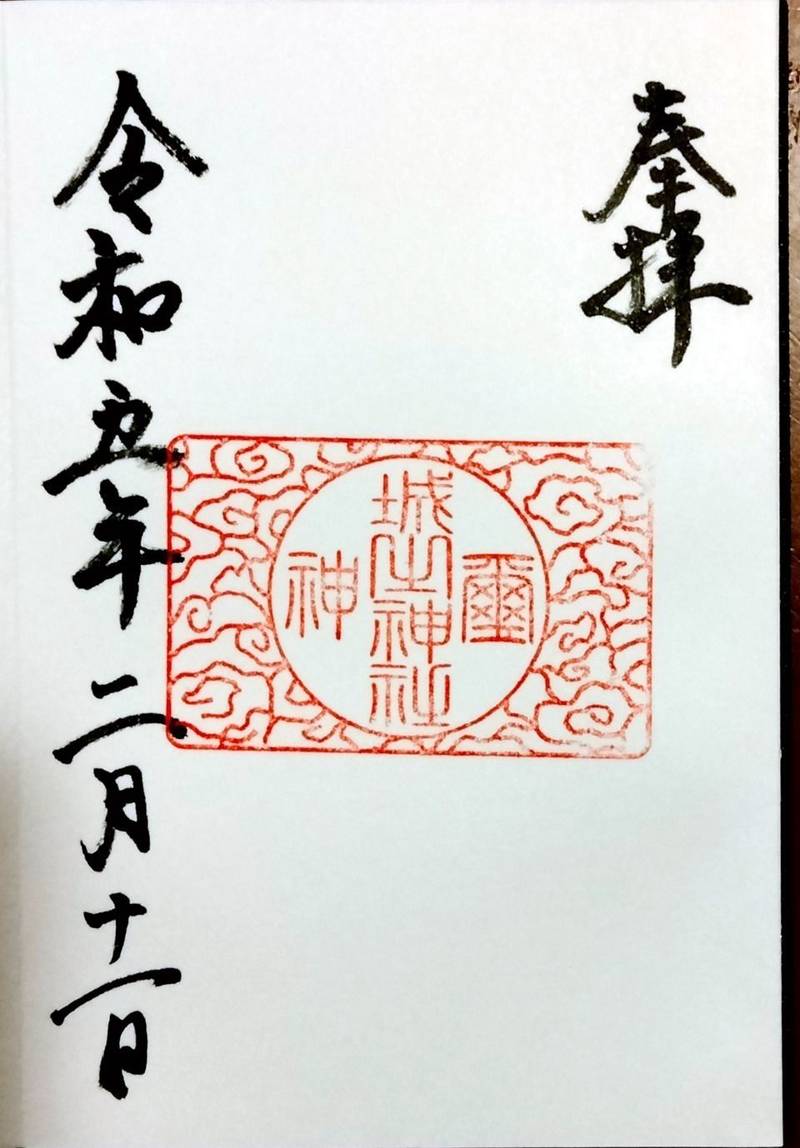 奉拝
爾
城山神社
神
令和五年二月十一日